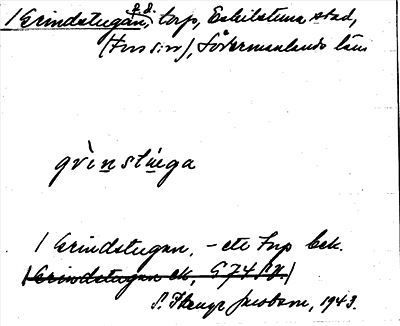 /Grindstugan, s.d. torp, Eskilstuna stad,
(Fors sn), Södermanlands län
grìnstúega
/ Grindstugan, - ett torp bek.
/Grindstugan ek, G 74
S. Jacobson, 1943.